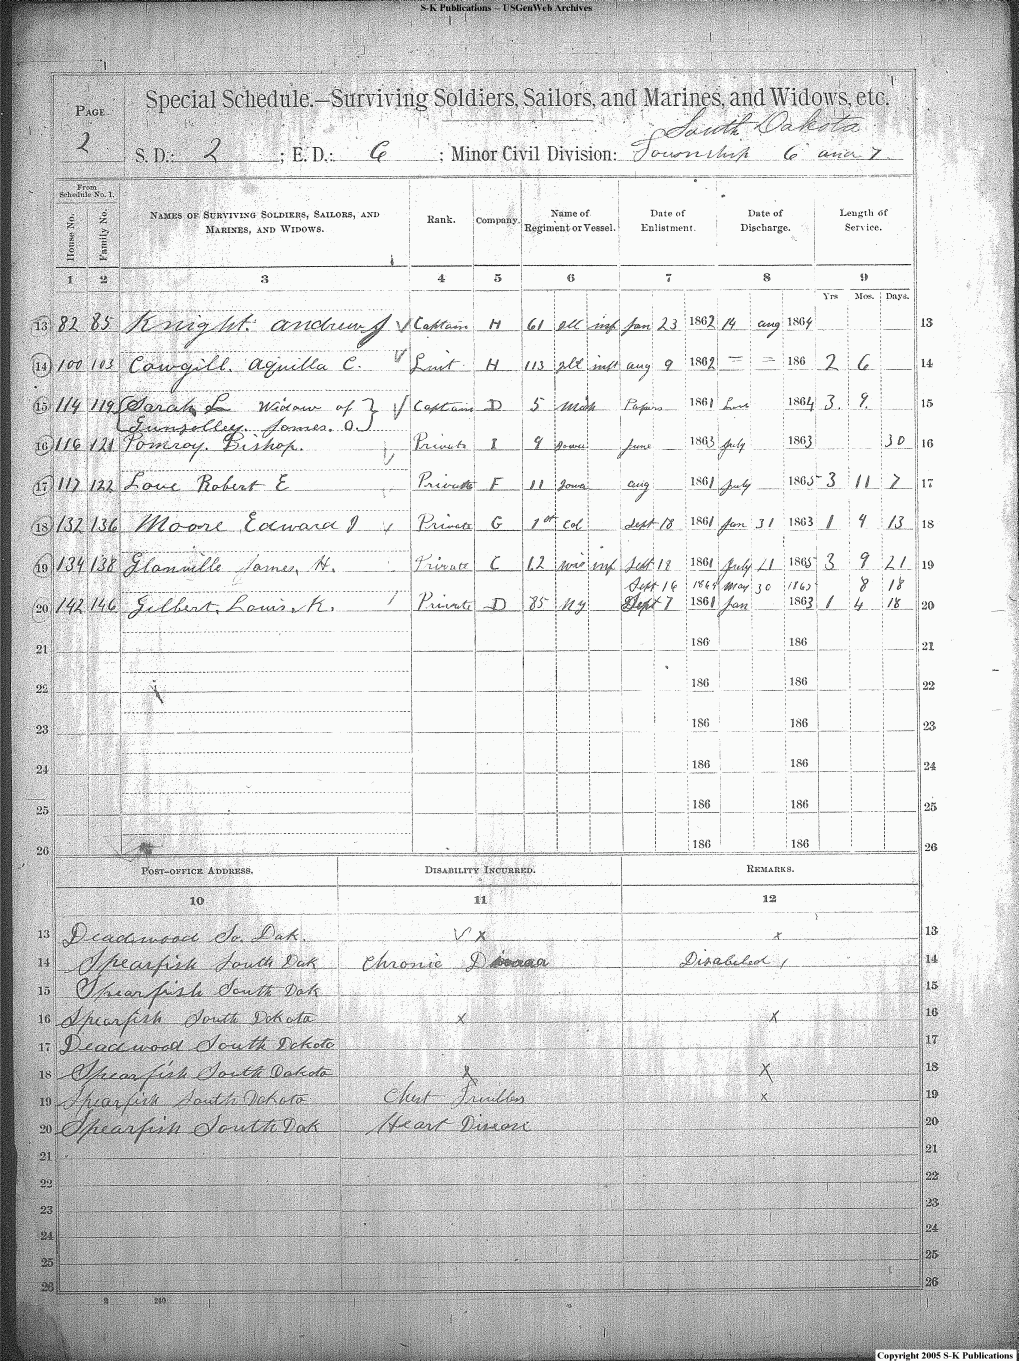 S-K Publications – USGenWeb Archives
Page 2
Special Schedule.—Surviving Soldiers, Sailors, and Marines, and Widows, etc.
South Dakota
S. D.: 2; E. D.: 6; Minor Civil Division: Township 6 and 7
From Schedule No. 1.
House No. Family No. Names of Surviving Soldiers, Sailors, and Marines, and Widows. Rank. Company. Name of Regiment or Vessel. Date of Enlistment. Date of Discharge. Length of Service.
1 2 3 4 5 6 7 8 9
Yrs Mos. Days.
13 82 85 Knight. Andrew J Captain H 61 Ill inf Jan 23 1862 14 aug 1864 13
14 100 103 Cowgill. Aquilla C. Luit H 113 Ill inft aug 9 1862 = = 186 2 6 14
15 114 119 Sarah L Widow of Captain D 5 1861 1864 3. 9. 15
Gunsolley. James. O.
16 116 121 Pomroy. Bishop. Private I 9 Iowa June 1863 July 1863 30 16
17 117 122 Love Robert E Private F 11 Iowa aug 1861 July 1865 3 11 7 17
18 132 136 Moore Edward J Private G 1st Col Sept 18 1861 Jan 31 1863 1 4 13 18
19 134 138 Glanville James, H. Private C 12 wis inf Sept 18 1861 July 21 1865 3 9 21 19
Sept 16 1864 May 30 1865 8 18
20 142 146 Gilbert, Louis, K. Private D 85 Ny Sept 7 1861 Jan 1863 1 4 18 20
21 186 186 21
22 186 186 22
23 186 186 23
24 186 186 24
25 186 186 25
26 186 186 26
Post-office Address. Disability Incurred. Remarks.
10 11 12
13 Deadwood So. Dak. x x 13
14 Spearfish South Dak Chronic Disabeled 14
15 Spearfish South Dak 15
16 Spearfish South Dakota x x 16
17 Deadwood South Dakota 17
18 Spearfish South Dakota x x 18
19 Spearfish South Dakota Chest Troubles x 19
20 Spearfish South Dak Heart Disease 20
21 21
22 22
23 23
24 24
25 25
26 26
240
Copyright 2005 S-K Publications